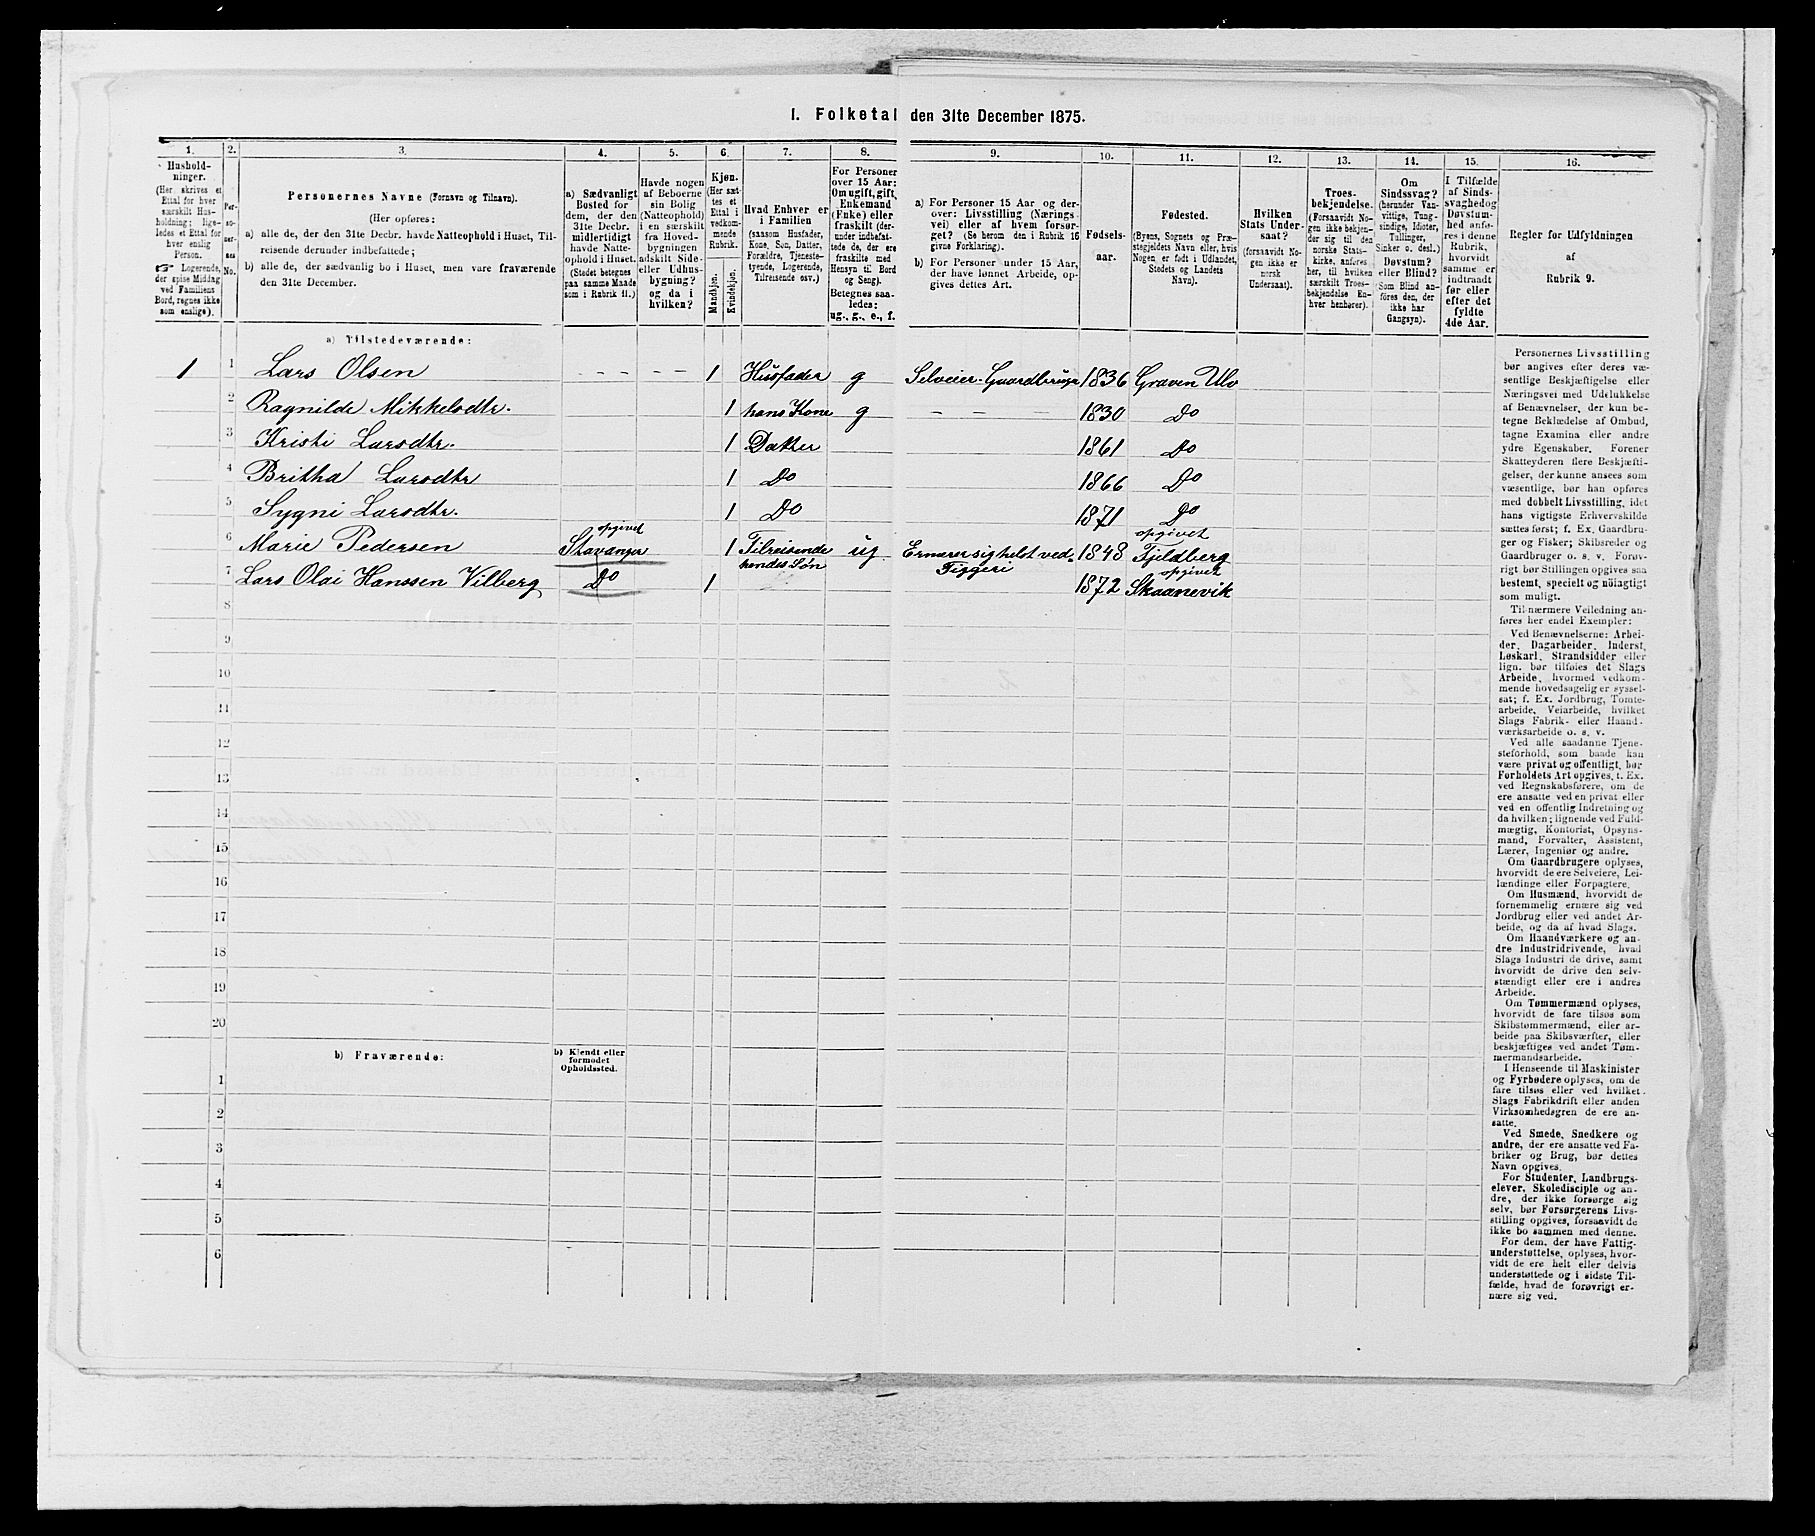 I. Folketal den 31te December 1875.
1. 2. 3. 4. 5. 6. 7. 8. 9. 10. 11. 12. 13. 14. 15. 16.
Hushold-
ninger.
(Her skrives et
Ettal for hver
særskilt Hus-
holdning; lige-
ledes et Ettal for
hver enslig
Person.
☞ Logerende,
der spise Middag
ved Familiens
Bord, regnes ikke
som enslige).
Per-
so-
ner-
nes
No.
Personernes Navne (Fornavn og Tilnavn).
(Her opføres:
a) alle de, der den 31te Decbr. havde Natteophold i Huset, Til-
reisende derunder indbefattede;
b) alle de, der sædvanlig bo i Huset, men vare fraværende
den 31te December.
a) Sædvanligt
Bosted for
dem, der den
31te Decbr.
midlertidigt
havde Natte-
ophold i Huset.
(Stedet betegnes
paa samme Maade
som i Rubrik 11.)
Havde nogen
af Beboerne
sin Bolig
(Natteophold)
i en særskilt
fra Hoved-
bygningen
adskilt Side-
eller Udhus-
bygning?
og da i
hvilken?
Kjøn.
(Her sæt-
tes et
Ettal i
vedkom-
mende
Rubrik.
Mandkjøn.
Kvindekjøn.
Hvad Enhver er
i Familien
(saasom Husfader,
Kone, Søn, Datter,
Forældre, Tjeneste-
tyende, Logerende,
Tilreisende osv.)
For Personer
over 15 Aar:
Om ugift, gift,
Enkemand
(Enke) eller
fraskilt (der-
under indbefat-
tede de, der ere
fraskilte med
Hensyn til Bord
og Seng).
Betegnes saa-
ledes:
ug., g., e., f.
a) For Personer 15 Aar og der-
over: Livsstilling (Nærings-
vei) eller af hvem forsør-
get? (Se herom den i Rubrik 16
givne Forklaring).
b) For Personer under 15 Aar,
der have lønnet Arbeide, op-
gives dettes Art.
Fødsels-
aar.
Fødested.
(Byens, Sognets og Præ-
stegjeldets Navn eller, hvis
Nogen er født i Udlandet,
Stedets og Landets
Navn).
Hvilken
Stats Under-
saat?
(forsaavidt No-
gen ikke er
norsk
Undersaat).
Troes-
bekjendelse.
(Forsaavidt No-
gen ikke bekjen-
der sig til den
norske Stats-
kirke, anføres
her, til hvilken
særskilt Troes-
bekjendelse En-
hver henhører).
Om
Sindssvag?
(herunder Van-
vittige, Tung-
sindige, Idioter,
Tullinger,
Sinker o. desl.)
Døvstum?
eller Blind?
(Som Blind an-
føres den, der
ikke har
Gangsyn).
I Tilfælde
af Sinds-
svaghed og
Døvstum-
hed anfø-
res i denne
Rubrik,
hvorvidt
samme er
indtraadt
før eller
efter det
fyldte
4de Aar.
Regler for Udfyldningen
af
Rubrik 9.
a) Tilstedeværende:
1 1 Lars Olsen 1 Husfader g Selveier. Gaardbruger 1836 Graven Ulv
2 Ragnilde Mikkelsdtr. 1 hans Kone g 1830 Do
3 Kristi Larsdtr. 1 Datter 1861 Do
4 Britha Larsdtr 1 Do 1866 Do
5 Sygni Larsdtr. 1 Do 1871 Do
6 Marie Pedersen opgivet Stavanger 1 Tilreisende ug Ernærer sig helst ved Tiggeri 1848 opgivet Fjeldberg
7 Lars Olai Hanssen Vilberg Do 1 hendes Søn 1872 opgivet Skaanevik
8
9
10
11
12
13
14
15
16
17
18
19
20
b) Fraværende:
b) Kjendt eller
formodet
Opholdssted.
1
2
3
4
5
6
Personernes Livsstilling
bør angives efter deres væ-
sentlige Beskjæftigelse eller
Næringsvei med Udelukkelse
af Benævnelser, der kun be-
tegne Beklædelse af Ombud,
tagne Examina eller andre
ydre Egenskaber. Forener
Skatteyderen flere Beskjæfti-
gelser, der kunne ansees som
væsentlige, bør han opføres
med dobbelt Livsstilling, idet
hans vigtigste Erhvervskilde
sættes først; f. Ex. Gaardbru-
ger og Fisker; Skibsreder og
Gaardbruger o. s. v. Forøv-
rigt bør Stillingen opgives saa
bestemt, specielt og nøiagtigt
som muligt.
Til nærmere Veiledning an-
føres her endel Exempler:
Ved Benævnelserne: Arbei-
der, Dagarbeider, Inderst,
Løskarl, Strandsidder eller
lign. bør tilføies det Slags
Arbeide, hvormed vedkom-
mende hovedsagelig er syssel-
sat; f. Ex. Jordbrug, Tomte-
arbeide, Veiarbeide, hvilket
Slags Fabrik- eller Haand-
værksarbeide o. s. v.
Ved alle saadanne Tjene-
steforhold, som baade kan
være privat og offentligt, bør
Forholdets Art opgives, t. Ex.
ved Regnskabsførere, om de
ere ansatte ved en privat eller
ved en offentlig Indretning og
da hvilken; lignende ved Fuld-
mægtig, Kontorist, Opsyns-
mand, Forvalter, Assistent,
Lærer, Ingeniør og andre.
Om Gaardbrugere oplyses,
hvorvidt de ere Selveiere, Lei-
lændinge eller Forpagtere.
Om Husmænd, hvorvidt de
fornemmelig ernære sig ved
Jordbrug eller ved andet Ar-
beide, og da af hvad Slags.
Om Haandværkere og an-
dre Industridrivende, hvad
Slags Industri de drive, samt
hvorvidt de drive den selv-
stændigt eller ere i andres
Arbeide.
Om Tømmermænd oplyses,
hvorvidt de fare tilsøs som
Skibstømmermænd, eller ar-
beide paa Skibsværfter, eller
beskjæftiges ved andet Tøm-
mermandsarbeide.
I Henseende til Maskinister
og Fyrbødere oplyses, om de
fare tilsøs eller ved hvilket
Slags Fabrikdrift eller anden
Virksomhedsgren de ere an-
satte.
Ved Smede, Snedkere og
andre, der ere ansatte ved Fa-
briker og Brug, bør dettes
Navn opgives.
For Studenter, Landbrugs-
elever, Skoledisciple og an-
dre, der ikke forsørge sig
selv, bør Forsørgerens Livs-
stilling opgives, forsaavidt de
ikke bo sammen med denne.
For dem, der have Fattig-
understøttelse, oplyses, hvor-
vidt de ere helt eller delvis
understøttede og i sidste Til-
fælde, hvad de forøvrigt er-
nære sig ved.